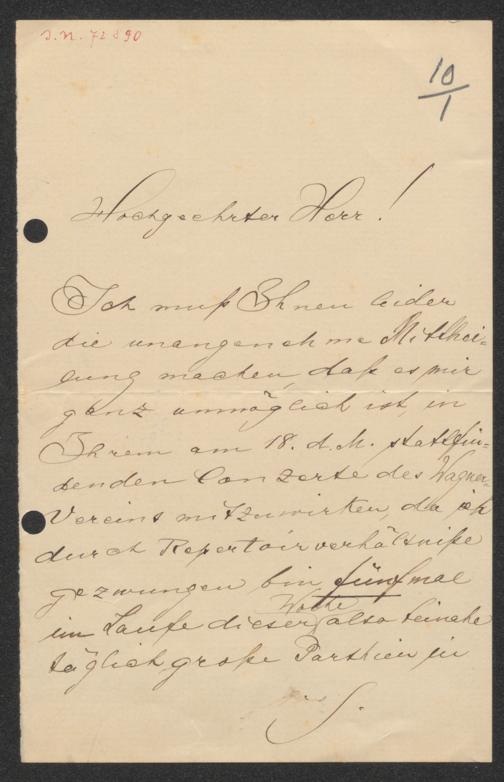 J.N. 72890
10/1
Hochgeehrter Herr!
Ich muß Ihnen leider
die unangenehme Mitthei-
lung machen, daß es mir
ganz unmöglich ist, in
Ihrem am 18. d. M. stattfin-
denden Conzerte des Wagner-
Vereins mitzuwirken, da ich
durch Repertoirverhältniße
gezwungen bin fünfmal
im Laufe dieser Woche also beinahe
täglich große Parthien in